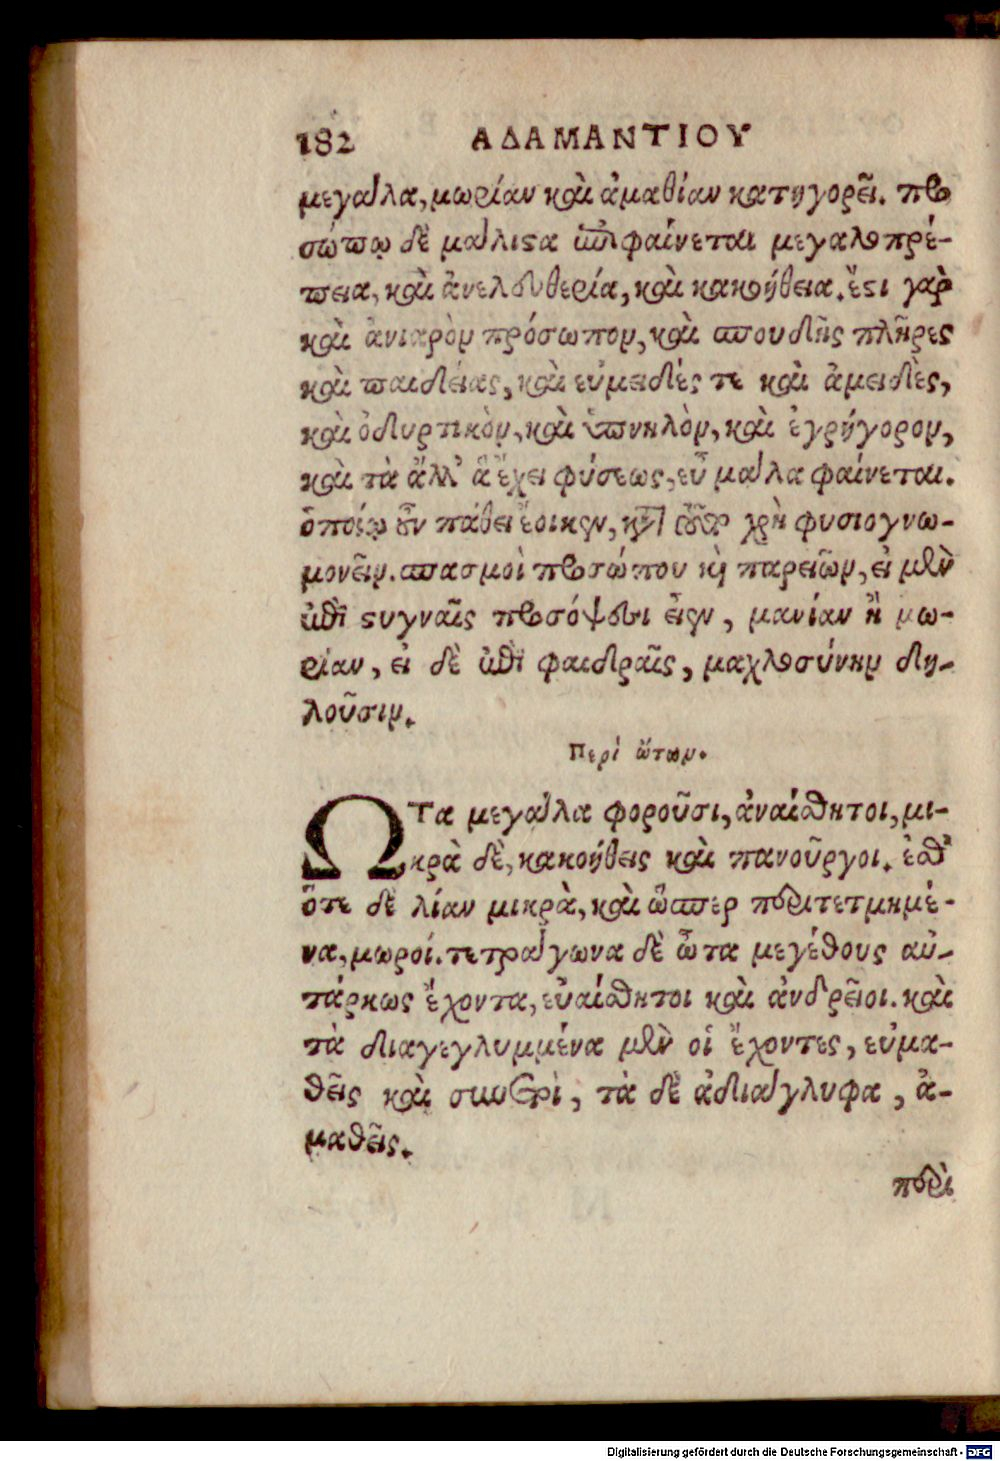 182 ΑΔΑΜΑΝΤΙΟΥ
μεγάλα, μωρίαν καὶ ἀμαθίαν κατηγορεῖ. προ
σώπῳ δὲ μάλιστα ἐπιφαίνεται μεγαλοπρέ-
πεια, καὶ ἀνελευθερία, καὶ κακοήθεια. ἔστι γὰρ
καὶ ἀνιαρὸν πρόσωπον, καὶ σπουδῆς πλῆρες
καὶ παιδείας, καὶ εὐμειδές τε καὶ ἀμειδὲς,
καὶ ὀδυρτικὸν, καὶ ὑπνηλὸν, καὶ ἐγρήγορον,
καὶ τὰ ἄλλ' ἃ ἔχει φύσεως, εὖ μάλα φαίνεται.
ὁποίῳ οὖν πάθει ἔοικεν, κατὰ τοῦτο χρὴ φυσιογνω-
μονεῖν. σπασμοὶ προσώπου καὶ παρειῶν, εἰ μὲν
ἐπὶ στυγναῖς προσόψεσι εἶεν, μανίαν ἢ μω-
ρίαν, εἰ δὲ ἐπὶ φαιδραῖς, μαχλοσύνην δη-
λοῦσιν.
Περὶ ὤτων.
ΩΤα μεγάλα φοροῦσι, ἀναίσθητοι, μι-
κρὰ δὲ, κακοήθεις καὶ πανοῦργοι. ἔσθ'
ὅτε δὲ λίαν μικρὰ, καὶ ὥσπερ περιτετμημέ-
να, μωροί. τετράγωνα δὲ ὦτα μεγέθους αὐ-
τάρκως ἔχοντα, εὐαίσθητοι καὶ ἀνδρεῖοι. καὶ
τὰ διαγεγλυμμένα μὲν οἱ ἔχοντες, εὐμα-
θεῖς καὶ συνετοὶ, τὰ δὲ ἀδιάγλυφα, ἀ-
μαθεῖς.
περὶ
Digitalisierung gefördert durch die Deutsche Forschungsgemeinschaft - DFG